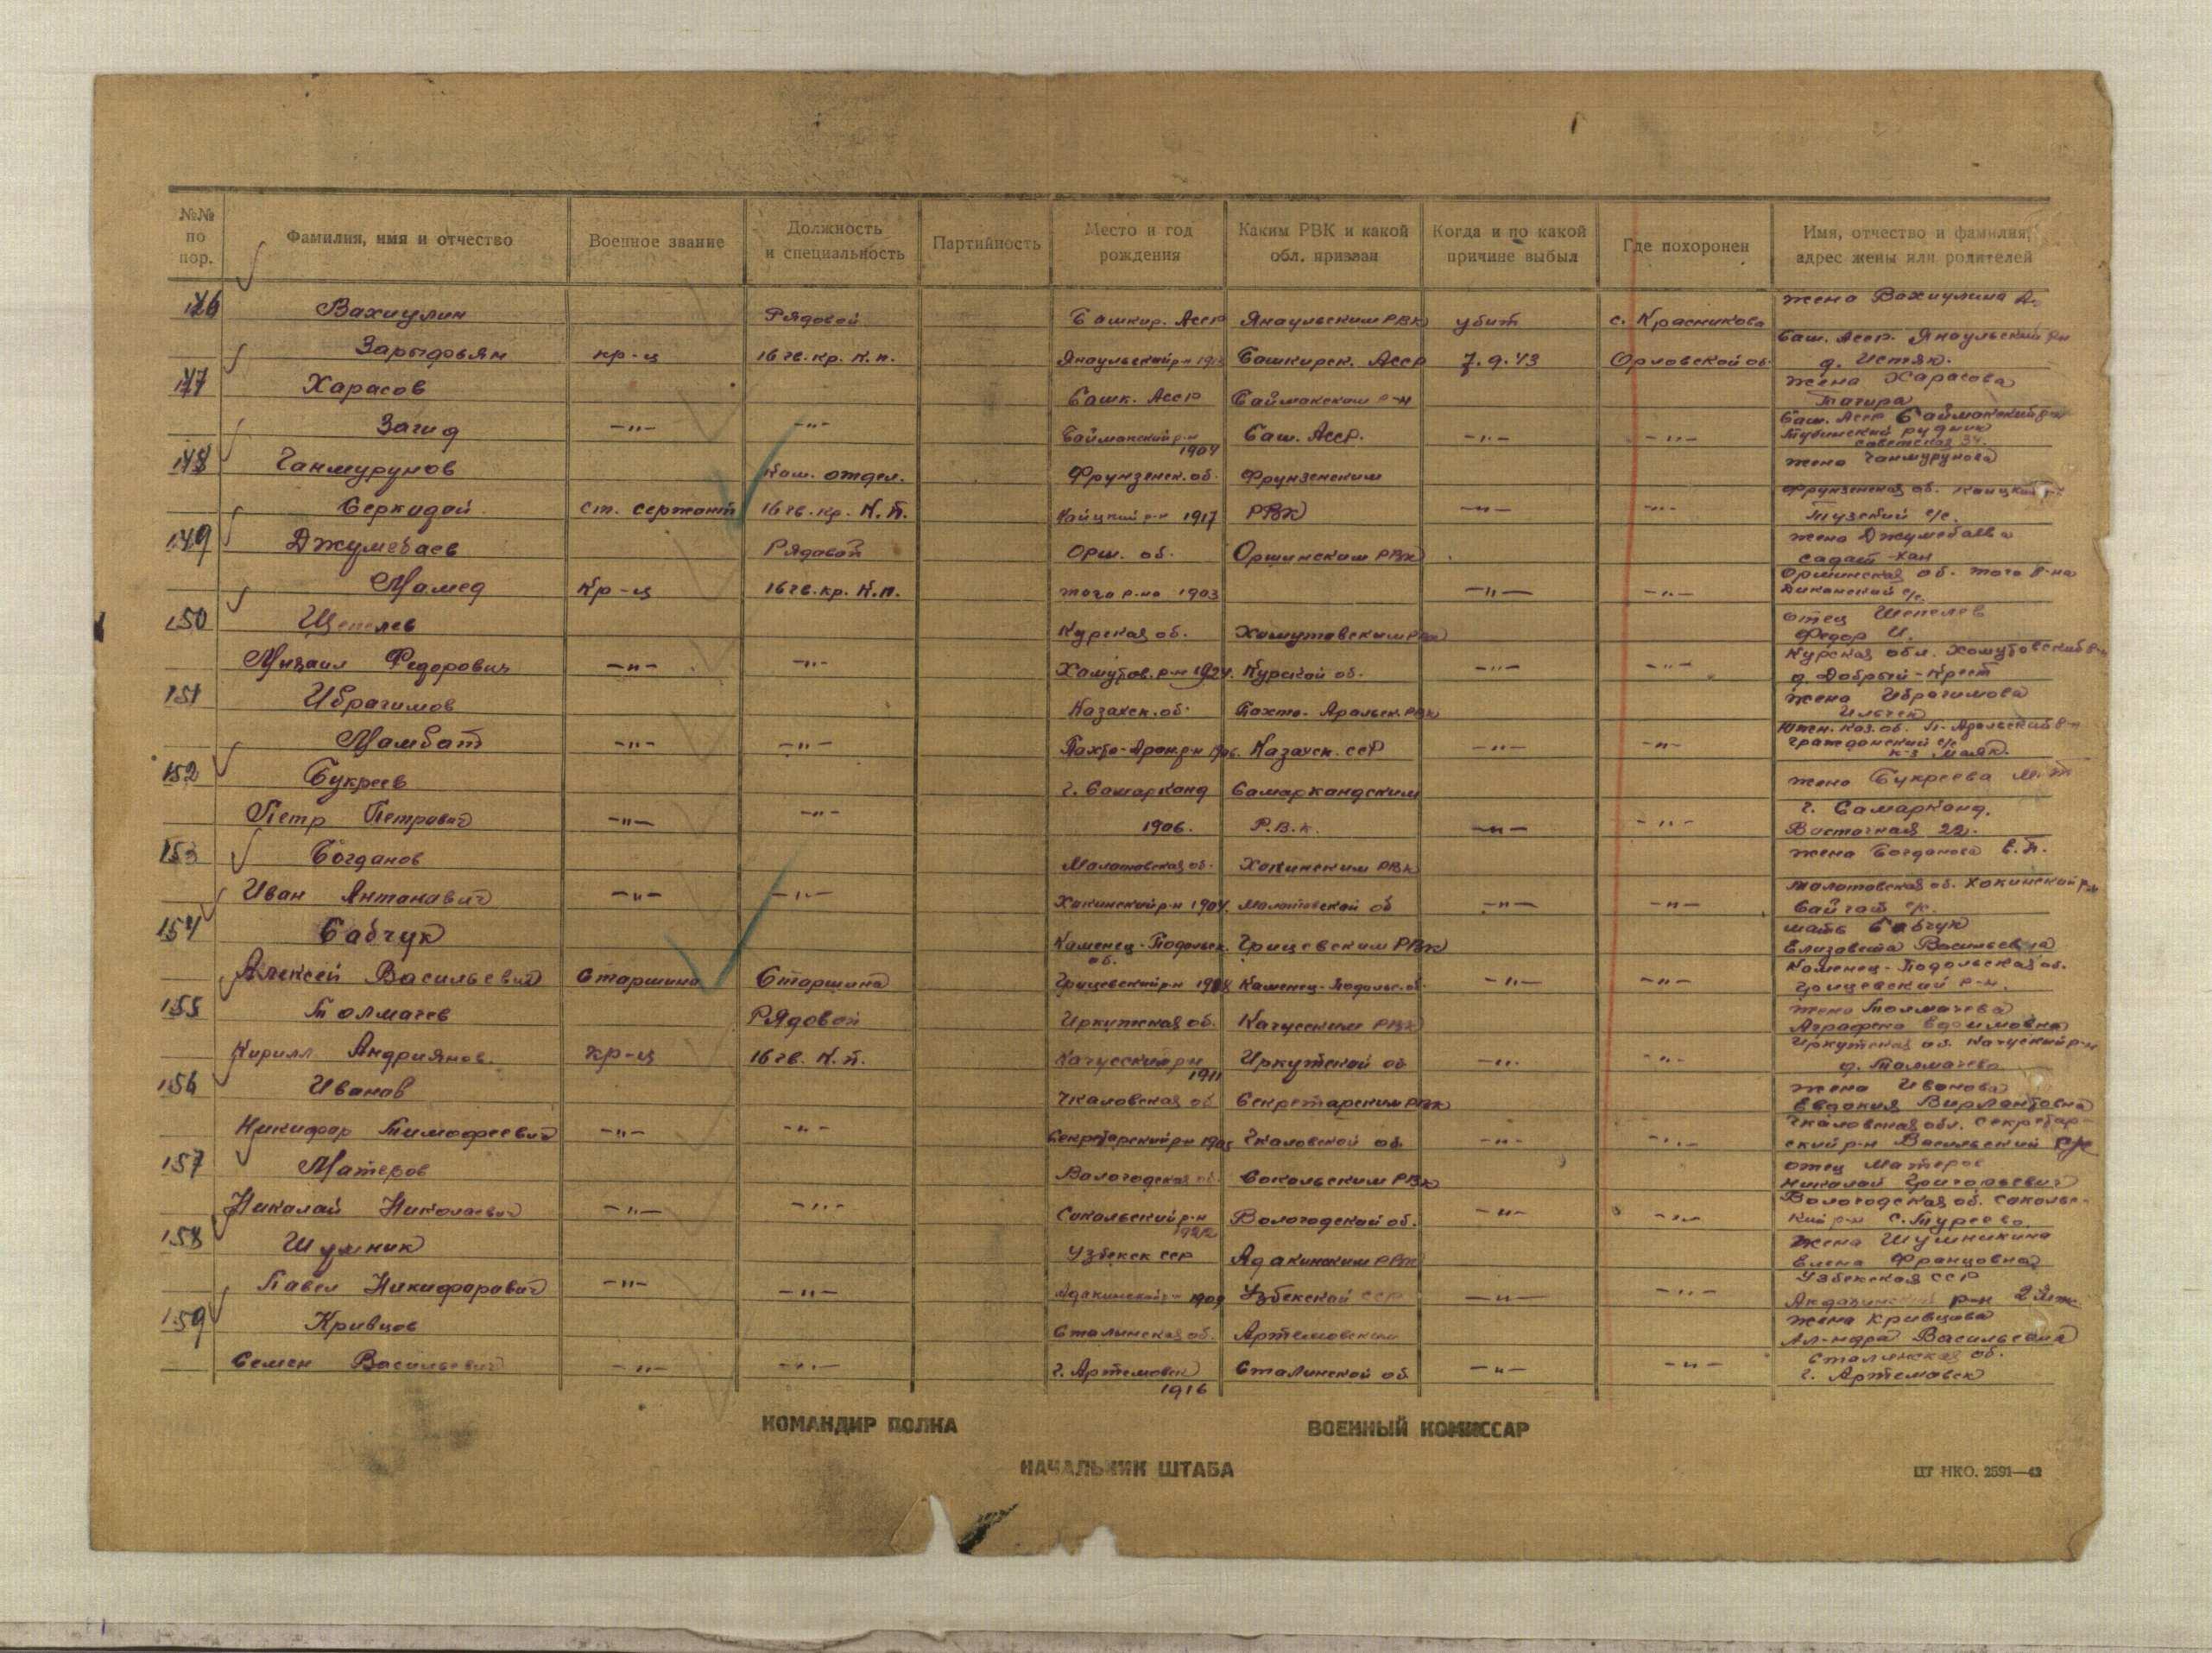 №№ по пор.
Фамилия, имя и отчество
Военное звание
Должность и специальность
Партийность
Место и год рождения
Каким РВК и какой обл. призван
Когда и по какой причине выбыл
Где похоронен
Имя, отчество и фамилия, адрес жены или родителей
146 Вахиулин Рядовой Башкир. Асср Янаульским РВК убит с. Красникова жена Вахиулина
Зарыфьян кр-ц 16 гв. кр. К.п. Янаульский р-н Башкирск. Асср 7.9.43 Орловской об. Баш. Асср. Янаульский р-н
д. Истяк.
147 Харасов Башк. Асср Баймакским р-н жена Харасова
Тагира
Загид -"- -"- Баймакский р-н 1904 Баш. Асср. -"- -"- Баш. Асср Баймакский р-н
Тубинский рудник
советская 34.
148 Ганмурунов Ком. отдел. Фрунзенск. об. Фрунзенским жена Ганмурунова
Серкадой ст. сержант 16 гв. кр. К.п. р-н 1917 РВК -"- -"- Фрунзенская об.
Тузский с/с.
149 Джумебаев Рядовой Орш. об. Оршинским РВК жена Джумебаева
садат-хан
Мамед Кр-ц 16 гв. кр. К.п. того р-на 1903 -"- -"- Оршинская об. того р-на
Диканский с/с
150 Щепелев Курская об. Хомутовским РВК отец Шепелев
Федор И.
Михаил Федорович -"- -"- Хомутов. р-н 1924. Курской об. -"- -"- Курская обл. Хомутовский р-н
д. Добрый-Крест
151 Ибрагимов Казахск. об. Пахто-Аральск. РВК жена Ибрагимова
Мамбат -"- -"- Пахто-Арал р-н 1906. Казахск. ссР -"- -"- Южн. Каз. об. П-Аральский р-н
Гражданский с/с
к-з маяк.
152 Букреев г. Самарканд Самаркандским жена Букреева М.Т
Петр Петрович -"- -"- 1906. Р.В.К. -"- -"- г. Самарканд.
Восточная 22.
153 Богданов Молотовская об. Хокинским РВК жена Богданова Е.П.
Иван Антонович -"- -"- Хокинский р-н 1904. Молотовской об -"- -"- Молотовская об. Хокинский р-н
Сайгат с/с.
154 Бабчук Каменец-Подольск. об. Грицевским РВК мать Бабчук
Елизовета Васильевна
Алексей Васильевич Старшина Старшина Грицевский р-н Каменец-Подольс. об. -"- -"- Каменец-Подольская об.
Грицевский р-н.
155 Толмачев Рядовой Иркутская об. Качугским РВК жена Толмачева
Аграфена
Кирилл Андриянов. кр-ц 16 гв. К.п. Качугский р-н 1911 Иркутской об -"- -"- Иркутская об. Качугский р-н
д. Толмачева
156 Иванов Чкаловская об Секретарским РВК жена Иванова
Евдокия
Никифор Тимофеевич -"- -"- Секретарский р-н 1905 Чкаловской об -"- -"- Чкаловская обл. Секретар-
ский р-н Васильевский с/с
157 Матеров Вологодская об. Сокольским РВК отец Матеров
Николай Григорьевич
Николай Николаевич -"- -"- Сокольский р-н 1922 Вологодской об. -"- -"- Вологодская об. Соколь-
кий р-н с.
158 Шумник Узбекск сср Адакинским РВК жена Шумникина
Елена Францовна
Павел Никифорович -"- -"- 1909 Узбекской ССР -"- -"- Узбекская ССР
р-н
159 Кривцов Сталинская об. Артемовским жена Кривцова
Ал-ндра Васильевна
Семен Васильевич -"- -"- г. Артемовск 1916 Сталинской об -"- -"- Сталинская об.
г. Артемовск
КОМАНДИР ПОЛКА ВОЕННЫЙ КОМИССАР
НАЧАЛЬНИК ШТАБА
ЦТ НКО. 2591—42